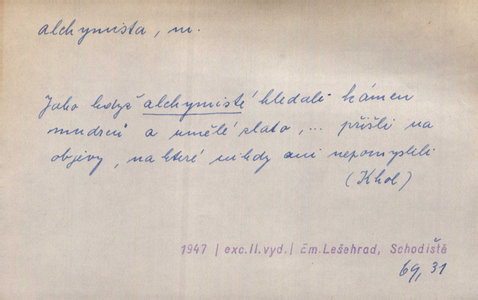 alchymista, m.
Jako když alchymisté hledali kámen
mudrců a umělé zlato, ... přišli na
objevy, na které nikdy ani nepomyslili
(Khol)
1947 / exc. II. vyd. / Em. Lešehrad, Schodiště
69, 31